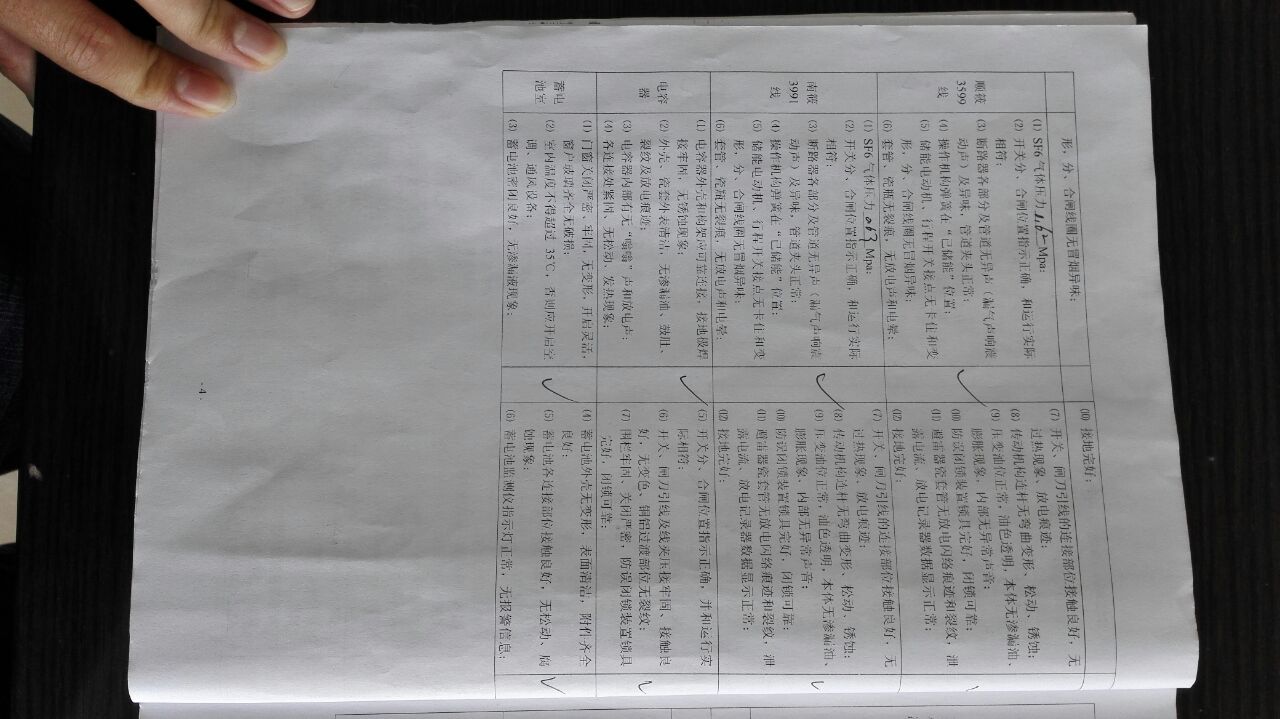 形，分、合闸线圈无冒烟异味；
⑽ 接地完好；
顺筱
3599
线
⑴ SF6 气体压力 Mpa；
⑵ 开关分、合闸位置指示正确，和运行实际
相符；
⑶ 断路器各部分及管道无异声（漏气声响震
动声）及异味，管道夹头正常；
⑷ 操作机构弹簧在“已储能”位置；
⑸ 储能电动机、行程开关接点无卡住和变
形，分、合闸线圈无冒烟异味；
⑹ 套管、瓷瓶无裂痕，无放电声和电晕；
✓
⑺ 开关、闸刀引线的连接部位接触良好，无
过热现象、放电痕迹；
⑻ 传动机构连杆无弯曲变形、松动、锈蚀；
⑼ 压变油位正常，油色透明，本体无渗漏油、
膨胀现象，内部无异常声音；
⑽ 防误闭锁装置锁具完好，闭锁可靠；
⑾ 避雷器瓷套管无放电闪络痕迹和裂纹，泄
露电流、放电记录器数据显示正常；
⑿ 接地完好；
南筱
3991
线
⑴ SF6 气体压力 0.63 Mpa；
⑵ 开关分、合闸位置指示正确，和运行实际
相符；
⑶ 断路器各部分及管道无异声（漏气声响震
动声）及异味，管道夹头正常；
⑷ 操作机构弹簧在“已储能”位置；
⑸ 储能电动机、行程开关接点无卡住和变
形，分、合闸线圈无冒烟异味；
⑹ 套管、瓷瓶无裂痕，无放电声和电晕；
✓
⑺ 开关、闸刀引线的连接部位接触良好，无
过热现象、放电痕迹；
⑻ 传动机构连杆无弯曲变形、松动、锈蚀；
⑼ 压变油位正常，油色透明，本体无渗漏油、
膨胀现象，内部无异常声音；
⑽ 防误闭锁装置锁具完好，闭锁可靠；
⑾ 避雷器瓷套管无放电闪络痕迹和裂纹，泄
露电流、放电记录器数据显示正常；
⑿ 接地完好；
✓
电容
器
⑴ 电容器外壳和构架应可靠连接；接地极焊
接牢固、无锈蚀现象；
⑵ 外壳、瓷套外表清洁，无渗漏油、鼓肚、
裂纹及放电痕迹；
⑶ 电容器内部有无“嗡嗡”声和放电声；
⑷ 各连接处紧固，无松动、发热现象；
✓
⑸ 开关分、合闸位置指示正确，并和运行实
际相符；
⑹ 开关、闸刀引线及线夹压接牢固、接触良
好，无变色、铜铝过渡部位无裂纹；
⑺ 围栏牢固、关闭严密，防误闭锁装置锁具
完好，闭锁可靠；
✓
蓄电
池室
⑴ 门窗关闭严密、牢固，无变形，开启灵活，
窗户玻璃齐全无破损；
⑵ 室内温度不得超过 35℃，否则应开启空
调、通风设备；
⑶ 蓄电池密闭良好，无渗漏液现象；
✓
⑷ 蓄电池外壳无变形，表面清洁，附件齐全
良好；
⑸ 蓄电池各连接部位接触良好，无松动、腐
蚀现象；
⑹ 蓄电池监测仪指示灯正常，无报警信息；
✓
·4·